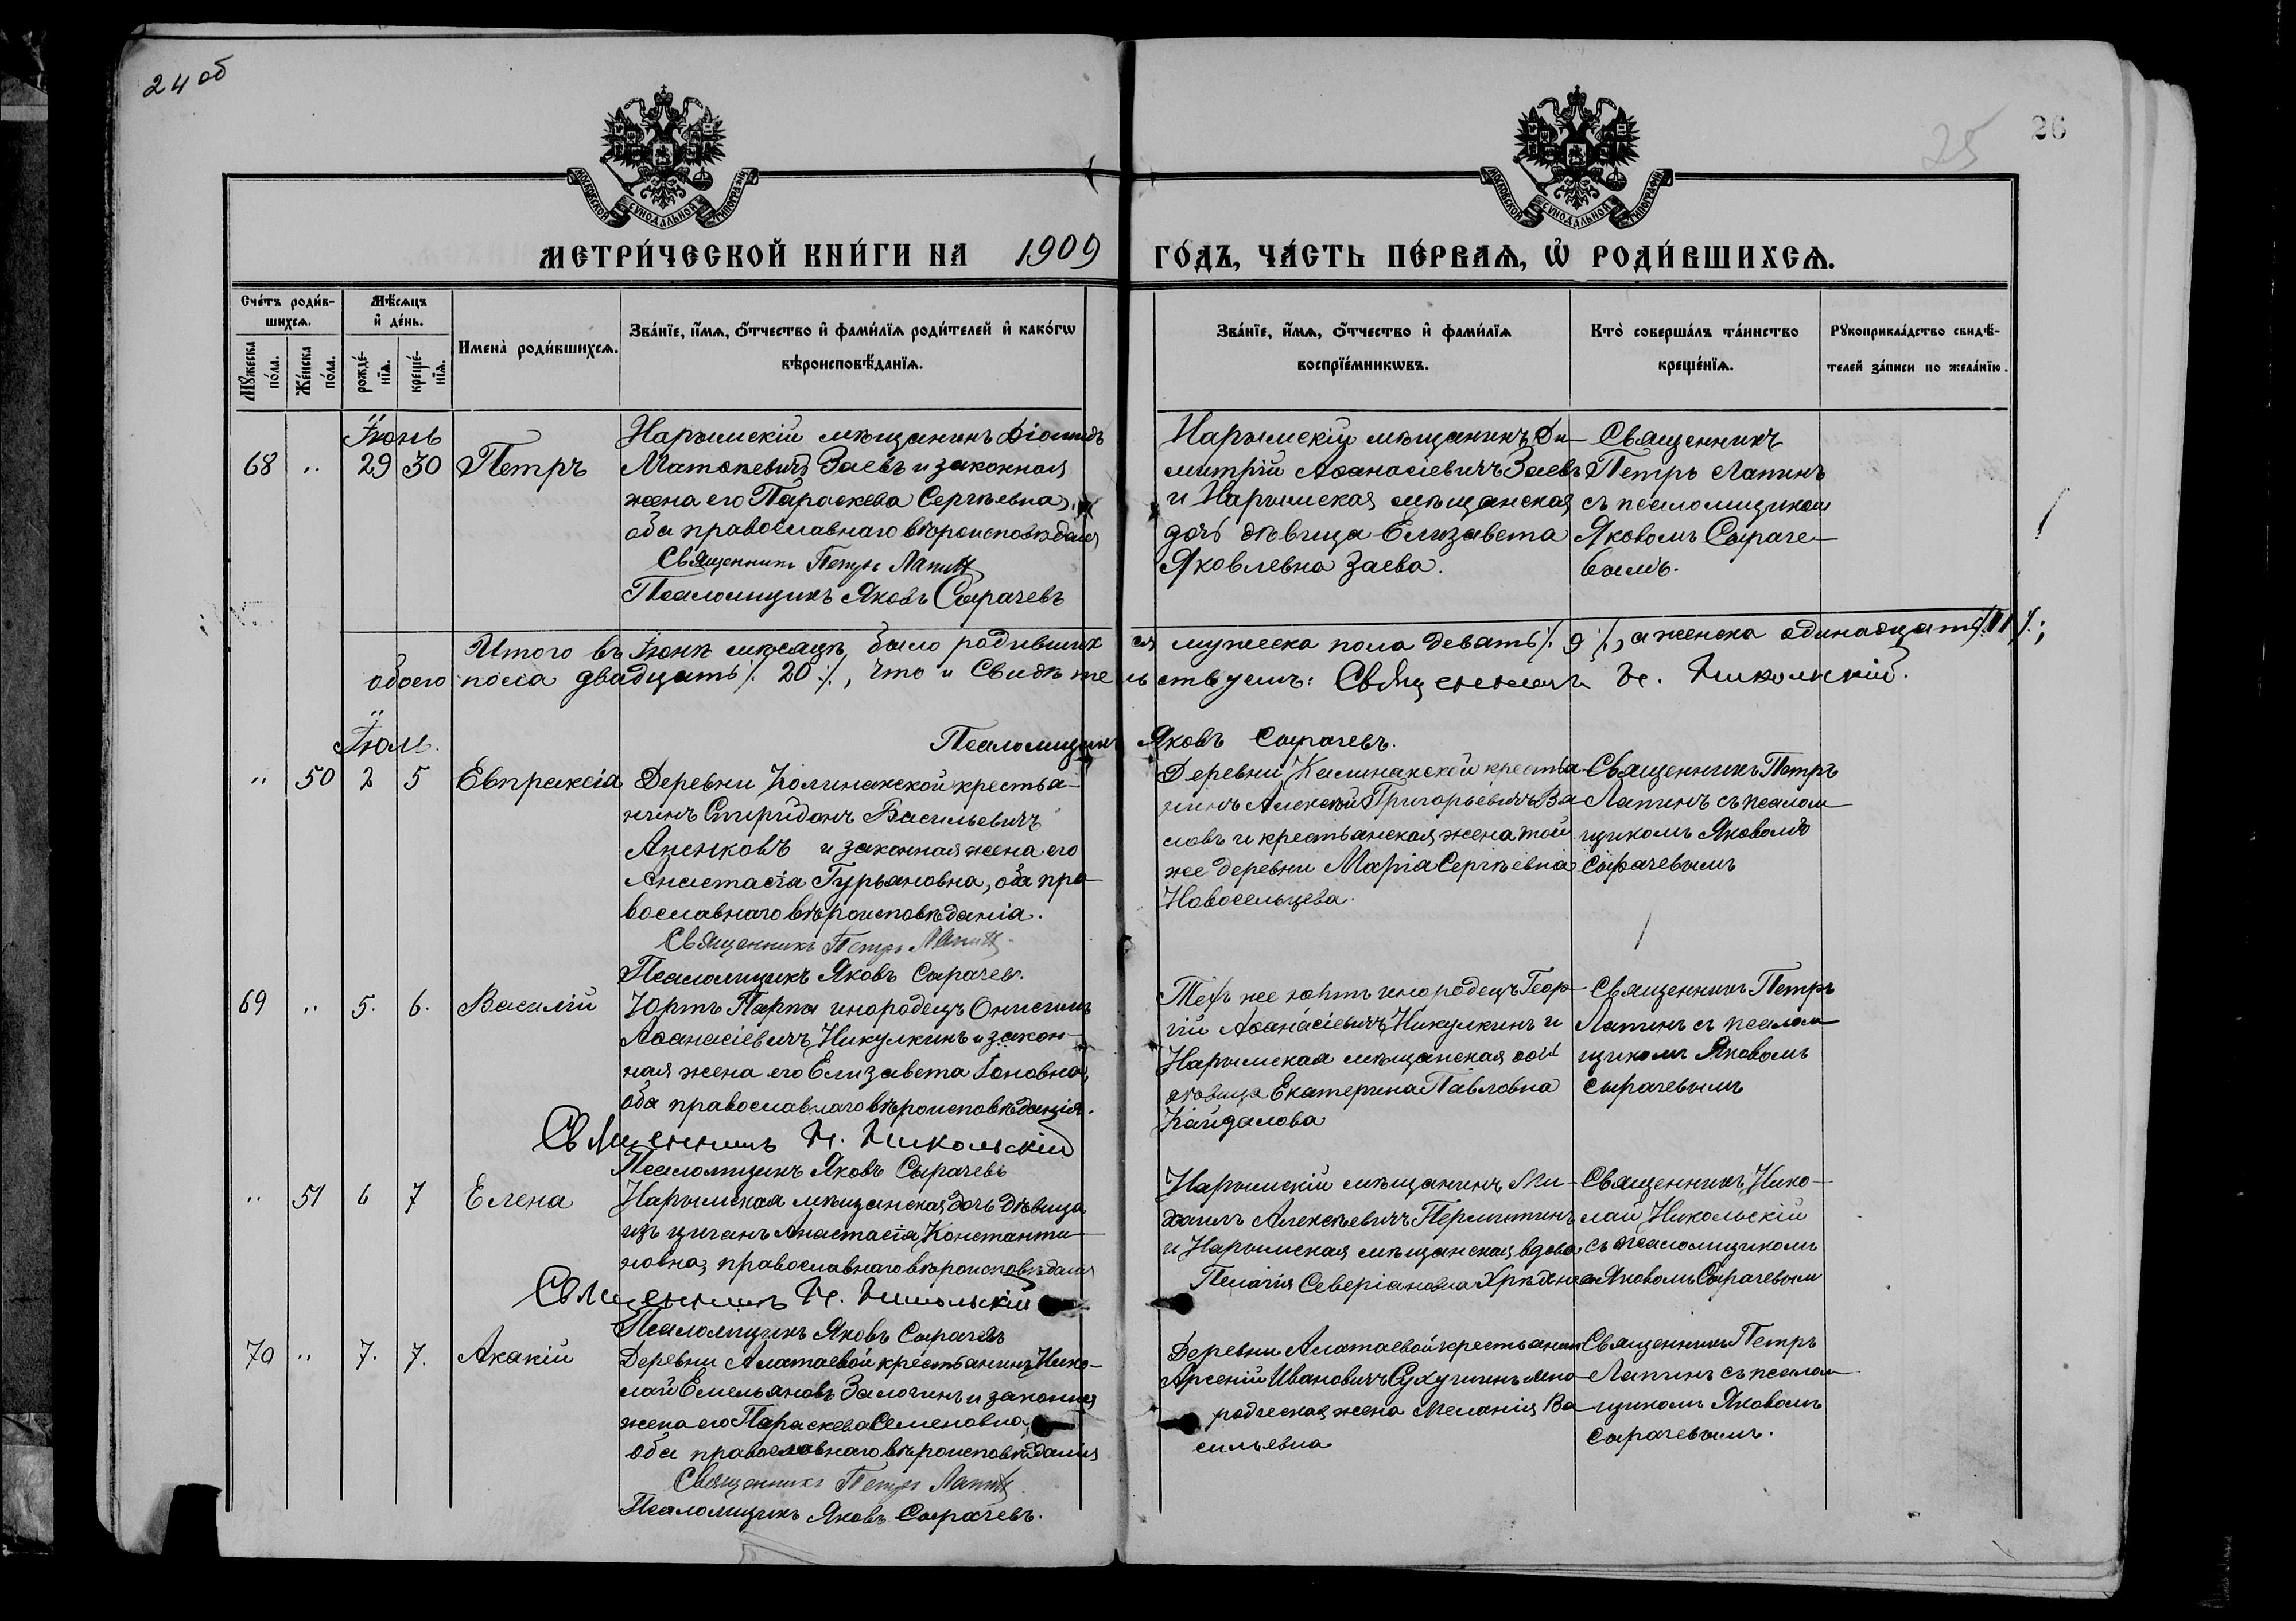 24 об
25
26
МОСКОВСКОЙ СѴНОДАЛЬНОЙ ТИПОГРАФІИ
МОСКОВСКОЙ СѴНОДАЛЬНОЙ ТИПОГРАФІИ
МЕТРИ́ЧЕСКОЙ КНИ́ГИ НА 1909 ГО́ДЪ, ЧА́СТЬ ПЕ́РВАѦ, Ѡ҆ РОДИ́ВШИХСѦ.
Сче́тъ роди́в-
шихсѧ.
Мꙋ́жеска по́ла.
Же́нска по́ла.
Мѣ́сѧцъ
и҆ де́нь.
рожде́-
нїѧ.
креще́-
нїѧ.
Имена̀ роди́вшихсѧ.
Зва́нїе, и҆́мѧ, ѻ҆́тчество и҆ фами́лїѧ роди́телей и҆ како́гѡ
вѣроисповѣ́данїѧ.
Зва́нїе, и҆́мѧ, ѻ҆́тчество и҆ фами́лїѧ
воспрїе́мникѡвъ.
Кто̀ соверша́лъ та́инство
креще́нїѧ.
Рꙋкоприкла́дство свидѣ́-
телей за́писи по жела́нїю.
Іюнь
68 " 29 30 Петръ
Нарымскій мѣщанинъ Діомидъ
Матѳевичъ Заевъ и законная
жена его Параскева Сергѣевна,
оба православнаго вѣроисповѣданія
Священникъ Петръ Лапинъ
Псаломщикъ Яковъ Сырачевъ
Нарымскій мѣщанинъ Ди-
митрій Аѳанасіевичъ Заевъ
и Нарымская мѣщанская
дочь дѣвица Елизавета
Яковлевна Заева.
Священникъ
Петръ Лапинъ
съ псаломщикомъ
Яковомъ Сыраче-
вымъ.
Итого въ Іюнѣ мѣсяцѣ было родившихся мужеска пола девять /. 9 /., а женска одинадцать /. 11 /.;
обоего пола двадцать /. 20 /., что и свидѣтельствуемъ: Священникъ Н. Никольскій.
Псаломщикъ Яковъ Сырачевъ.
Іюль.
" 50 2 5 Евпраксіа
Деревни Колинакской крестья-
нинъ Спиридонъ Васильевичъ
Аненковъ и законная жена его
Анастасіа Гурьяновна, оба пра-
вославнаго вѣроисповѣданіа.
Священникъ Петръ Лапинъ
Псаломщикъ Яковъ Сырачев.
Деревни Калинакской крестья-
нинъ Алексѣй Григорьевичъ Ва
словъ и крестьянская жена той
же деревни Маріа Сергѣевна
Новосельцева.
Священникъ Петръ
Лапинъ съ псалом
щикомъ Яковомъ
Сырачевымъ
69 " 5. 6. Василій
Юртъ Парты инородецъ Онисимъ
Аѳанасіевичъ Никулкинъ и закон-
ная жена его Елизавета Іоновна,
оба православнаго вѣроисповѣданія.
Священникъ Н. Никольскій
Псаломщикъ Яковъ Сырачевъ
Тѣхъ же юртъ инородецъ Геор-
гій Аѳанасіевичъ Никулкинъ и
Нарымская мѣщанская дочь
дѣвица Екатерина Павловна
Кайдалова
Священникъ Петръ
Лапинъ съ псалом
щикомъ Яковомъ
Сырачевымъ
" 51 6 7 Елена
Нарымская мѣщанская дочь дѣвица
изъ циганъ Анастасіа Константи-
новна, православнаго вѣроисповѣданія
Священникъ Н. Никольскій
Псаломщикъ Яковъ Сырачевъ
Нарымскій мѣщанинъ Ми-
хаилъ Алексѣевичъ Перемитинъ
и Нарымская мѣщанская вдова
Пелагія Северіановна
Священникъ Нико-
лай Никольскій
съ псаломщикомъ
Яковомъ Сырачевым
70 " 7. 7. Акакій
Деревни Алатаевой крестьянинъ Нико-
лай Емельяновъ Залогинъ и законная
жена его Параскева Семеновна,
оба православнаго вѣроисповѣданія
Священникъ Петръ Лапинъ
Псаломщикъ Яковъ Сырачевъ.
Деревни Алатаевой крестьянин
Арсеній Ивановичъ Сухушинъ ино
родческая жена Меланія Ва
сильевна
Священникъ Петръ
Лапинъ съ псалом
щикомъ Яковомъ
Сырачевымъ.